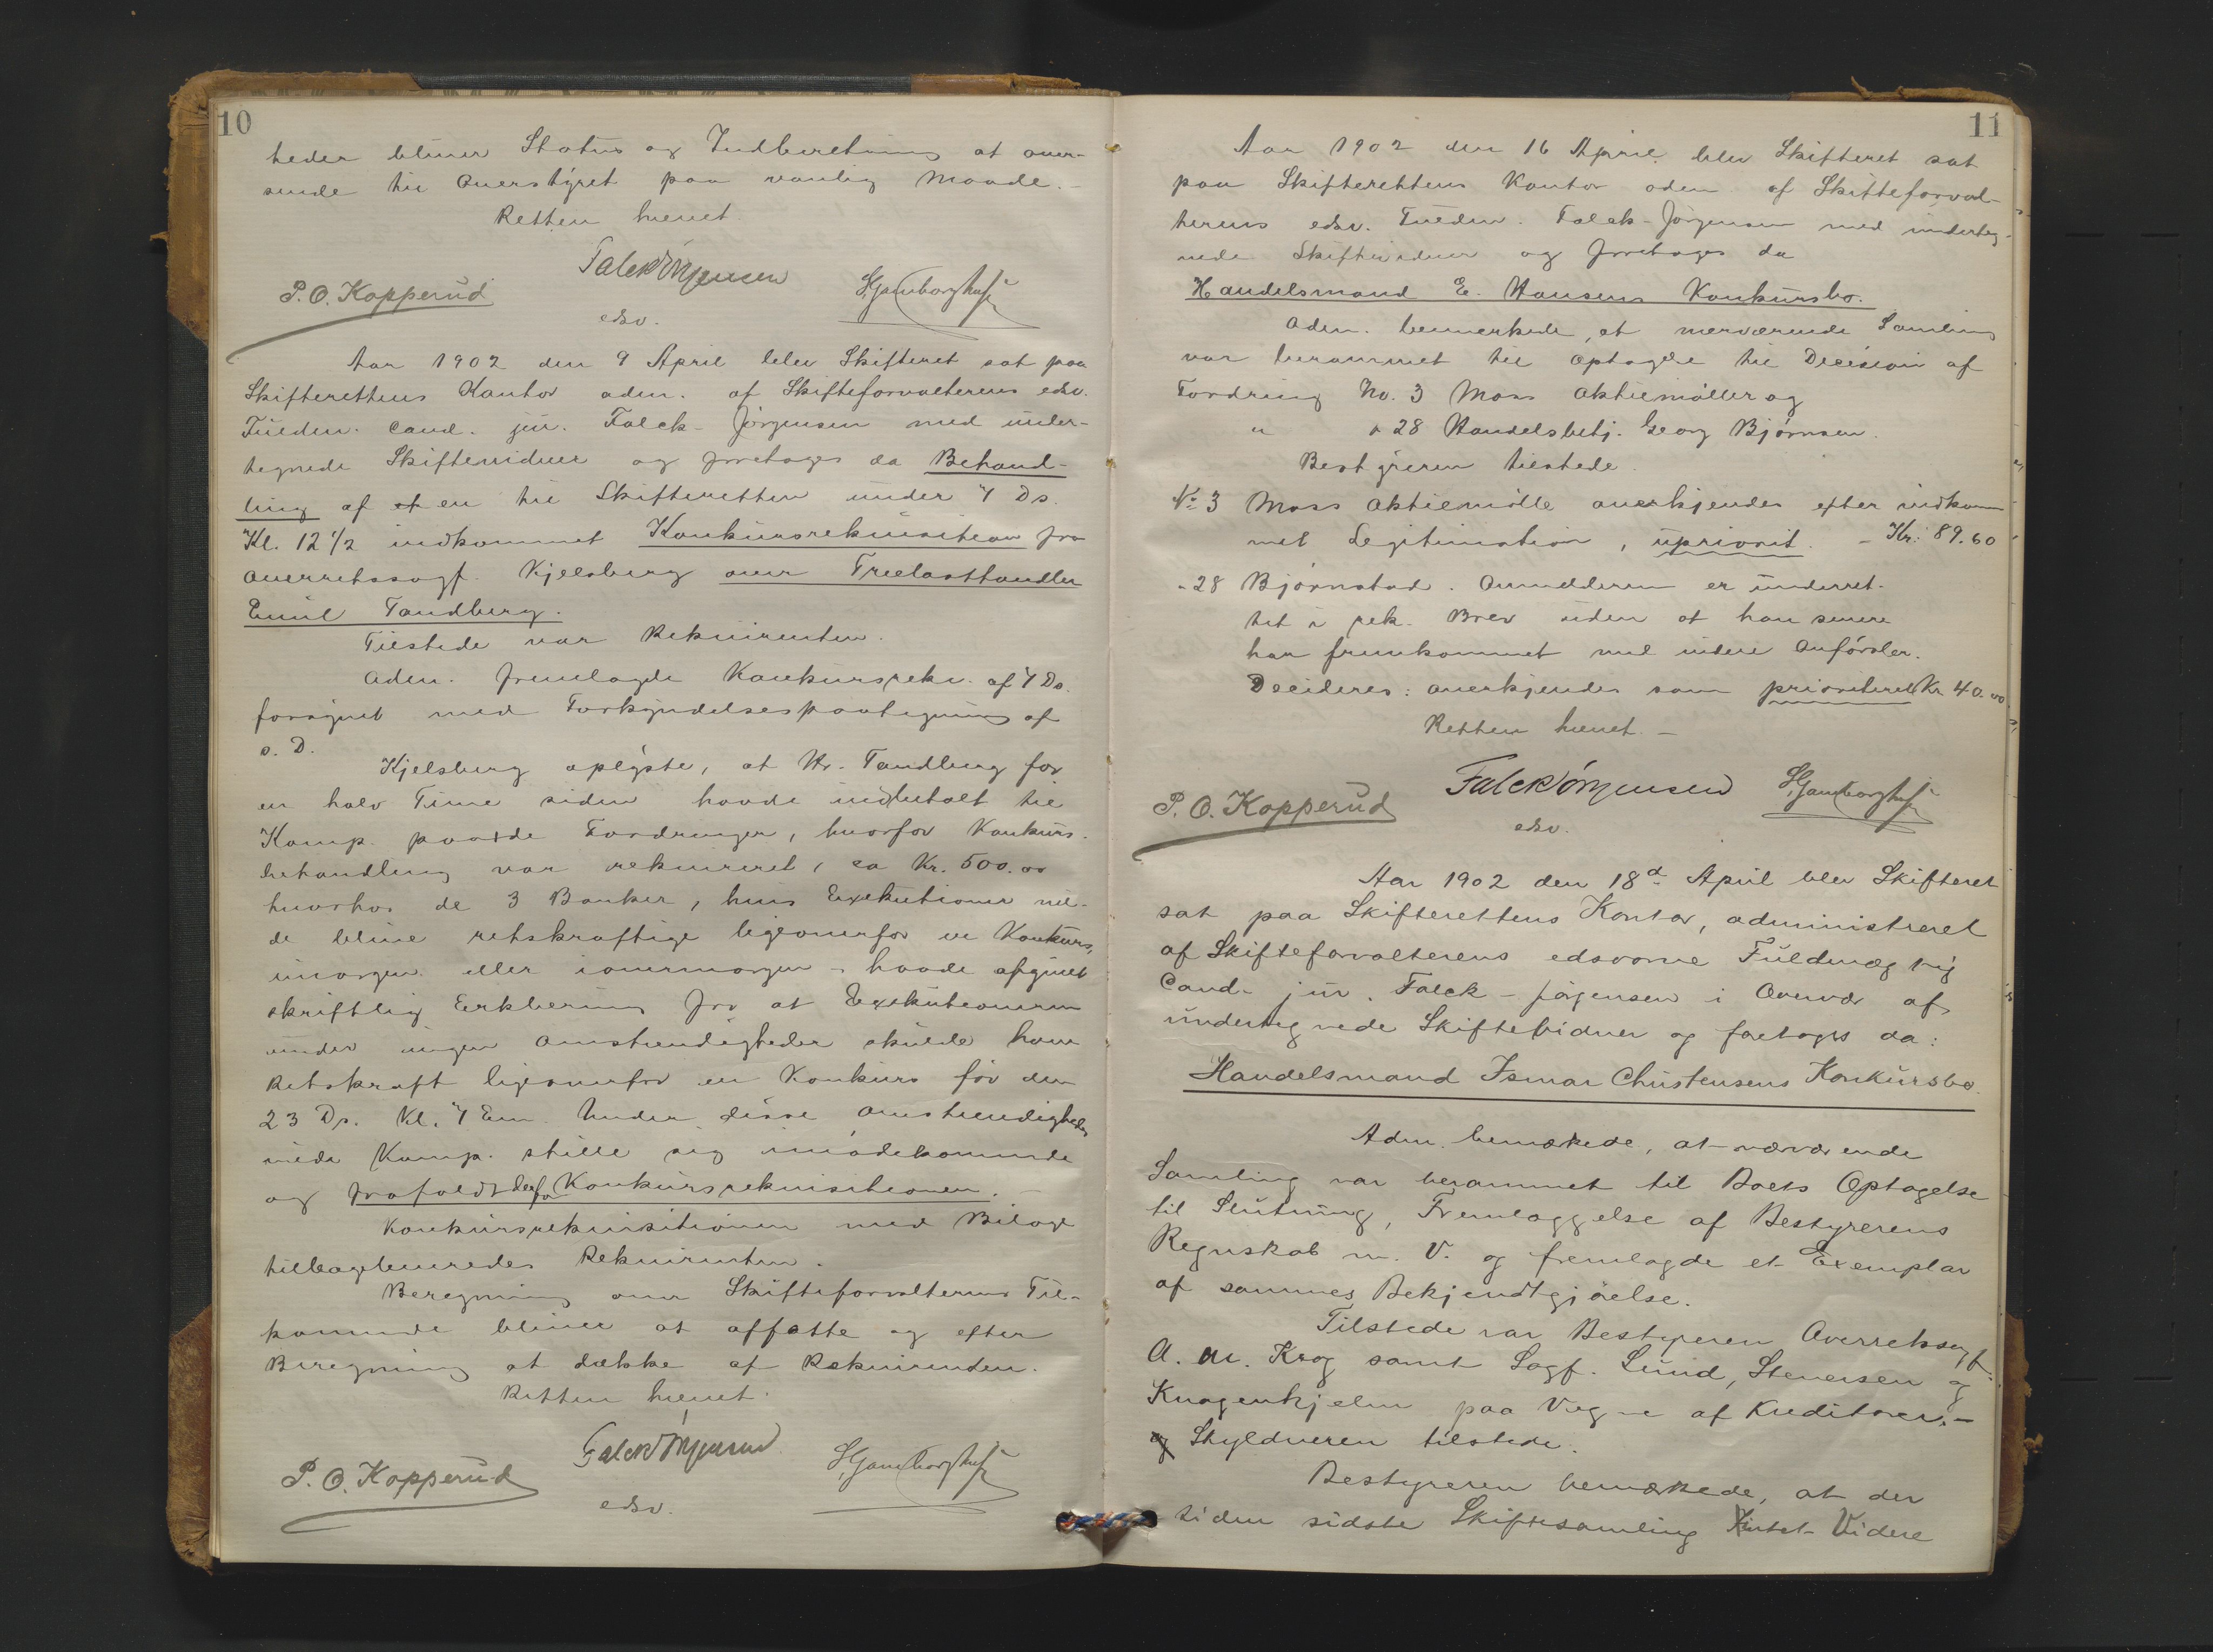 10
heder bliver Status og Indberetning at over-
sende til Overstyret paa vanlig Maade. -
Retten hævet.
Falck Jørgensen
P. O. Kopperud
edsv.
Aar 1902 den 9 April blev Skifteret sat paa
Skifterettens Kontor adm. af Skifteforvalterens edsv.
Fuldm. Cand. jur. Falck-Jørgensen med under-
tegnede Skiftevidner og foretages da Behand-
ling af en til Skifteretten under 7 Ds.
Kl. 12 1/2 indkommet Konkursrekvisition fra
Overretssagf. Kjelsberg over Trælasthandler
Emil Tandberg.
Tilstede var Rekvirenten.
Adm. fremlagde Konkursrekv. af 7 Ds.
forsynet med Forkyndelsespaategning af
s. D.
Kjelsberg oplyste, at Hr. Tandberg for
en halv Time siden havde indbetalt til
Komp. paa de Fordringer, hvorfor Konkurs-
behandling var rekvireret, ca Kr. 500.00
hvorhos de 3 Banker, hvis Exekutioner vil-
de blive retskraftige ligeoverfor en Konkurs,
imorgen eller iovermorgen - havde afgivet
skriftlig Erklæring for at Exekutionerne
under ingen Omstændigheder skulde have
Retskraft ligeoverfor en Konkurs før den
23 Ds. Kl. 7 Em. Under disse Omstændigheder
vilde Komp. stille sig imødekommende
og frafaldt derfor Konkursrekvisitionen. -
Konkursrekvisitionen med Bilage
tilbageleveredes Rekvirenten.
Beregning over Skifteforvalterens Til-
kommende bliver at affatte og efter
Beregning at dække af Rekvirenden.
Retten hævet.
Falck Jørgensen
P. O. Kopperud
edsv.
11
Aar 1902 den 16 April blev Skifteret sat
paa Skifterettens Kontor adm. af Skifteforval-
terens edsv. Fuldm. Falck-Jørgensen med underteg-
nede Skiftevidner og foretages da
Handelsmand E. Hansens Konkursbo.
Adm. bemerkede, at nærværende Samling
var berammet til Optagelse til Decision af
Fordring No. 3 Moss Aktiemøller og
" " 28 Handelsbetj. Georg Bjørnsen.
Bestyreren tilstede.
No 3 Moss Aktiemølle anerkjendes efter indkom
met Legitimation, uprivrit. - Kr. 89.60
" 28 Bjørnstad. Anmelderen er underret-
tet i rek. Brev uden at han senere
har fremkommet med videre Anførsler.
Decideres: anerkjendes som prioriteret Kr 40.00
Retten hævet. -
Falck Jørgensen
P. O. Kopperud
edsv.
Aar 1902 den 18de April blev Skifteret
sat paa Skifterettens Kontor, administreret
af Skifteforvalterens edsvorne Fuldmægtig
Cand. jur. Falck-Jørgensen i Overvær af
undertegnede Skiftevidner og foretoges da:
Handelsmand Ismar Christensens Konkursbo.
Adm. bemærkede, at nærværende
Samling var berammet til Boets Optagelse
til Slutning, Fremlæggelse af Bestyrerens
Regnskab m. V. og fremlagde et Exemplar
af sammes Bekjendtgjørelse.
Tilstede var Bestyreren Overretssagf.
A. M. Krog samt Sagf. Lund, Stenersen og
Knagenhjelm paa Vegne af Kreditorer. -
og Skyldneren tilstede.
Bestyreren bemærkede, at der
siden sidste Skiftesamling Intet Videre